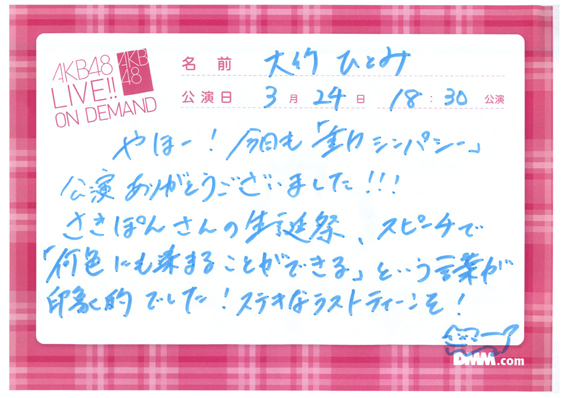 AKB48
LIVE!!
ON DEMAND
AKB
48
名前 大竹 ひとみ
公演日 3月24日 18:30公演
やほー!今日も「鉄シンパシー」
公演ありがとうございました!!!
さきぽんさんの生誕祭、スピーチで
「何色にも染まることができる」という言葉が
印象的でした!ステキなラストティーンを!
DMM.com